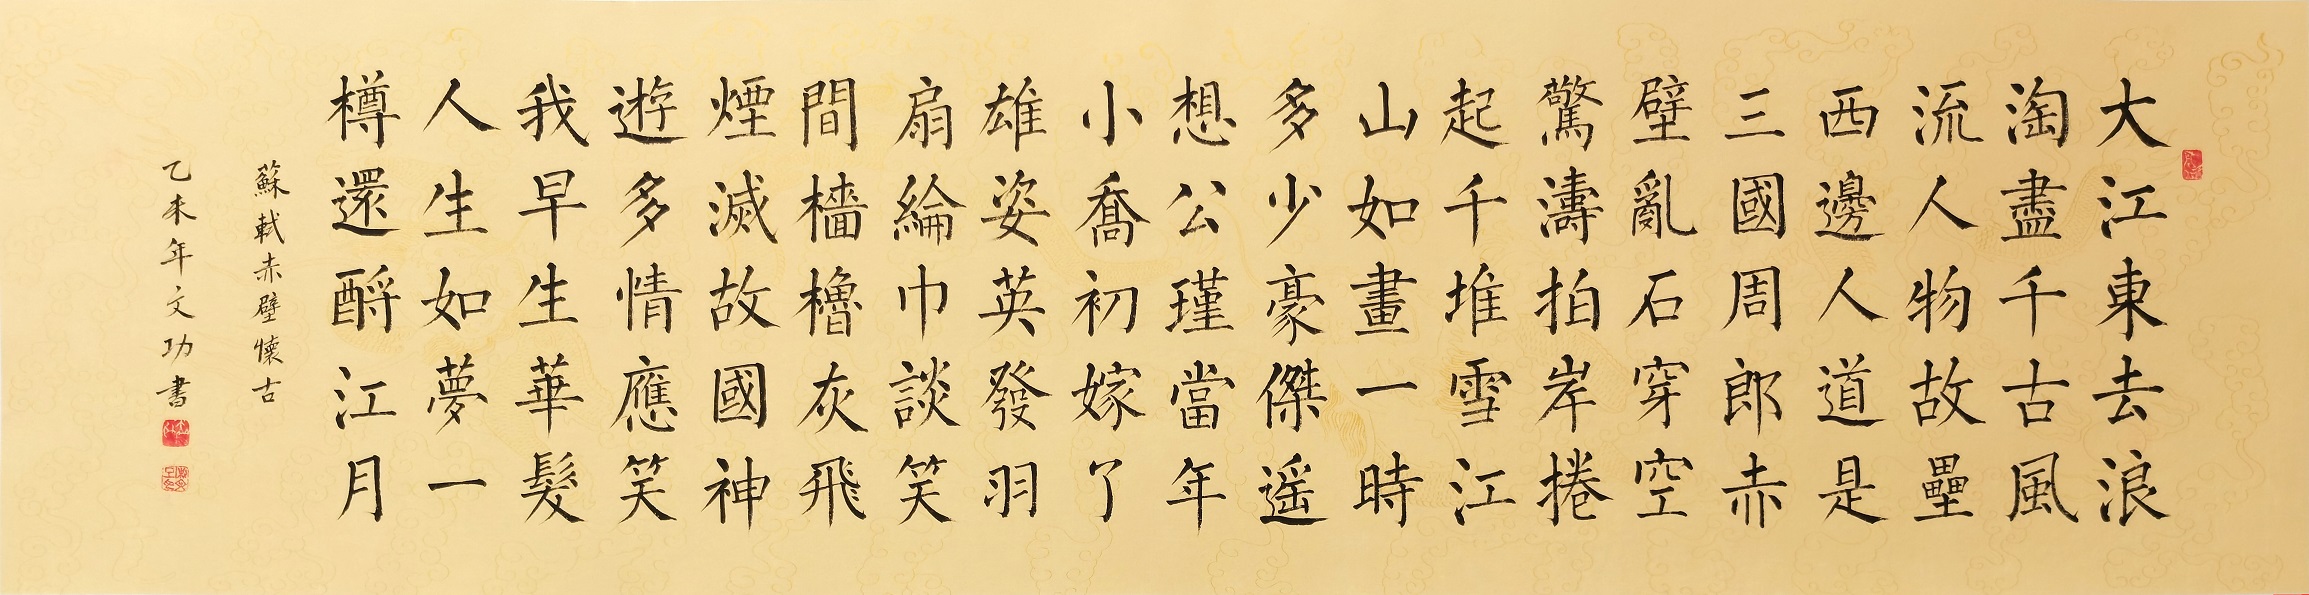 大江東去浪
淘盡千古風
流人物故壘
西邊人道是
三國周郎赤
壁亂石穿空
驚濤拍岸捲
起千堆雪江
山如畫一時
多少豪傑遥
想公瑾當年
小喬初嫁了
雄姿英發羽
扇綸巾談笑
間檣櫓灰飛
煙滅故國神
遊多情應笑
我早生華髮
人生如夢一
樽還酹江月
蘇軾赤壁懷古
乙未年文功書